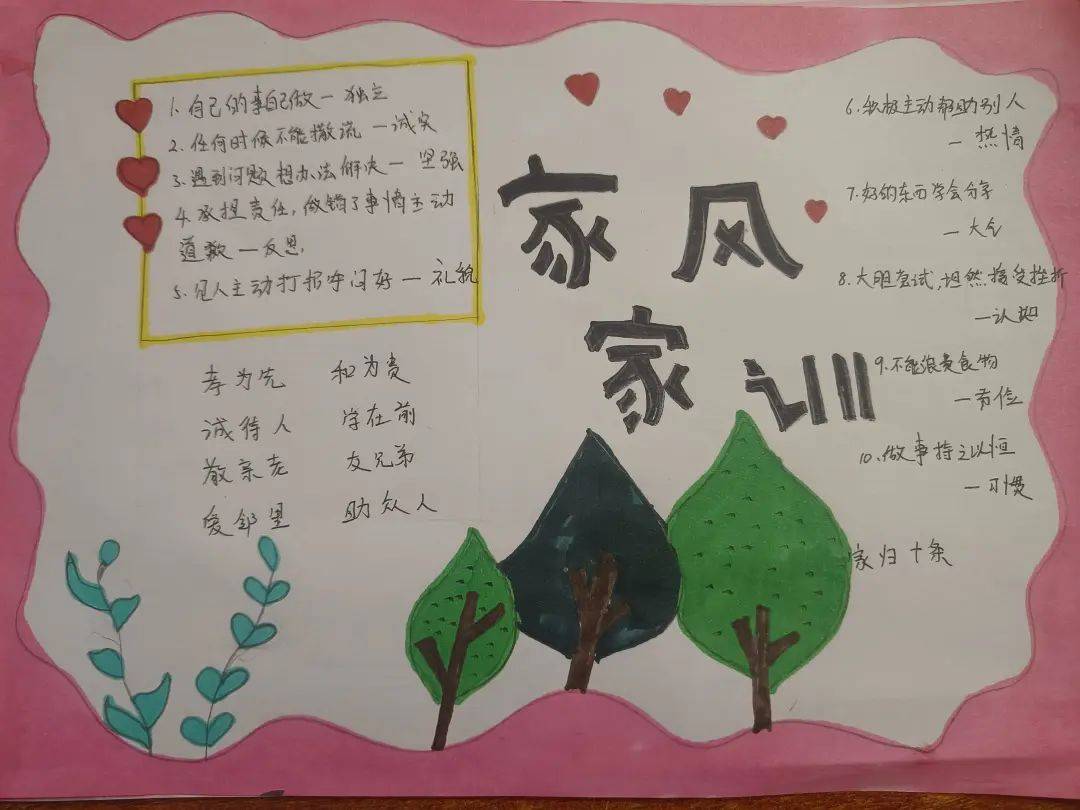 家风
家训
1、自己的事自己做一独立
2、任何时候不能撒流一诚实
3、遇到问题想办法解决一坚强
4、承担责任,做错了事情主动
道歉一反思.
5、见人主动打招呼问好一礼貌
孝为先 和为贵
诚待人 学在前
敬亲老 友兄弟
爱邻里 助众人
6、积极主动帮助别人
一热情
7、好的东西学会分享
一大
8、大胆尝试,坦然接受挫折
一认知
9、不能浪费食物
一节俭
10、做事持之以恒
一习惯
家归十条